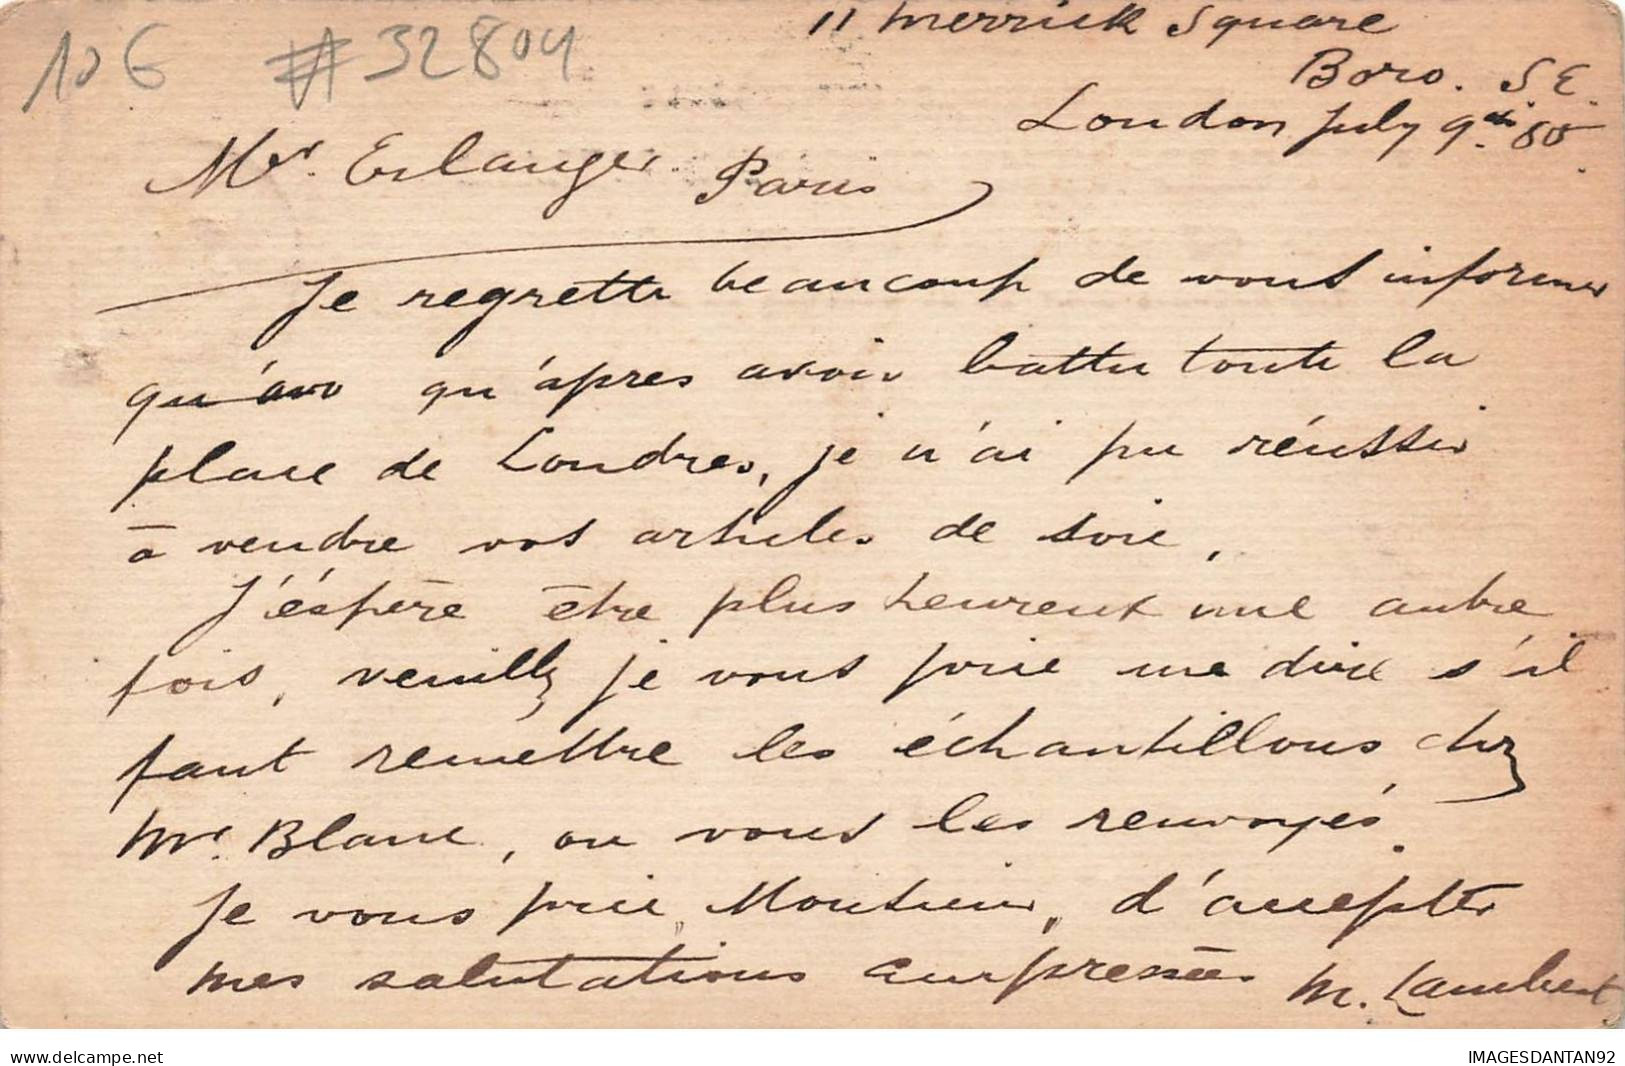 10 € #32804
11 Merrick Square
Boro. S E.
London July 9th. 80
Mr. Erlanger. Paris
Je regrette beaucoup de vous informer
qu'avo qu'apres avoir battu toute la
place de Londres, je n'ai pu réussir
à vendre vos articles de soie,
J'éspère être plus heureux une autre
fois, veuillz je vous prie me dire s'il
faut remettre les échantillons chez
Mr. Blanc, ou vous les renvoyés.
Je vous prie, Monsieur, d'accepter
mes salutations empressées M. Lambert
delcampe.net
IMAGESDANTAN92